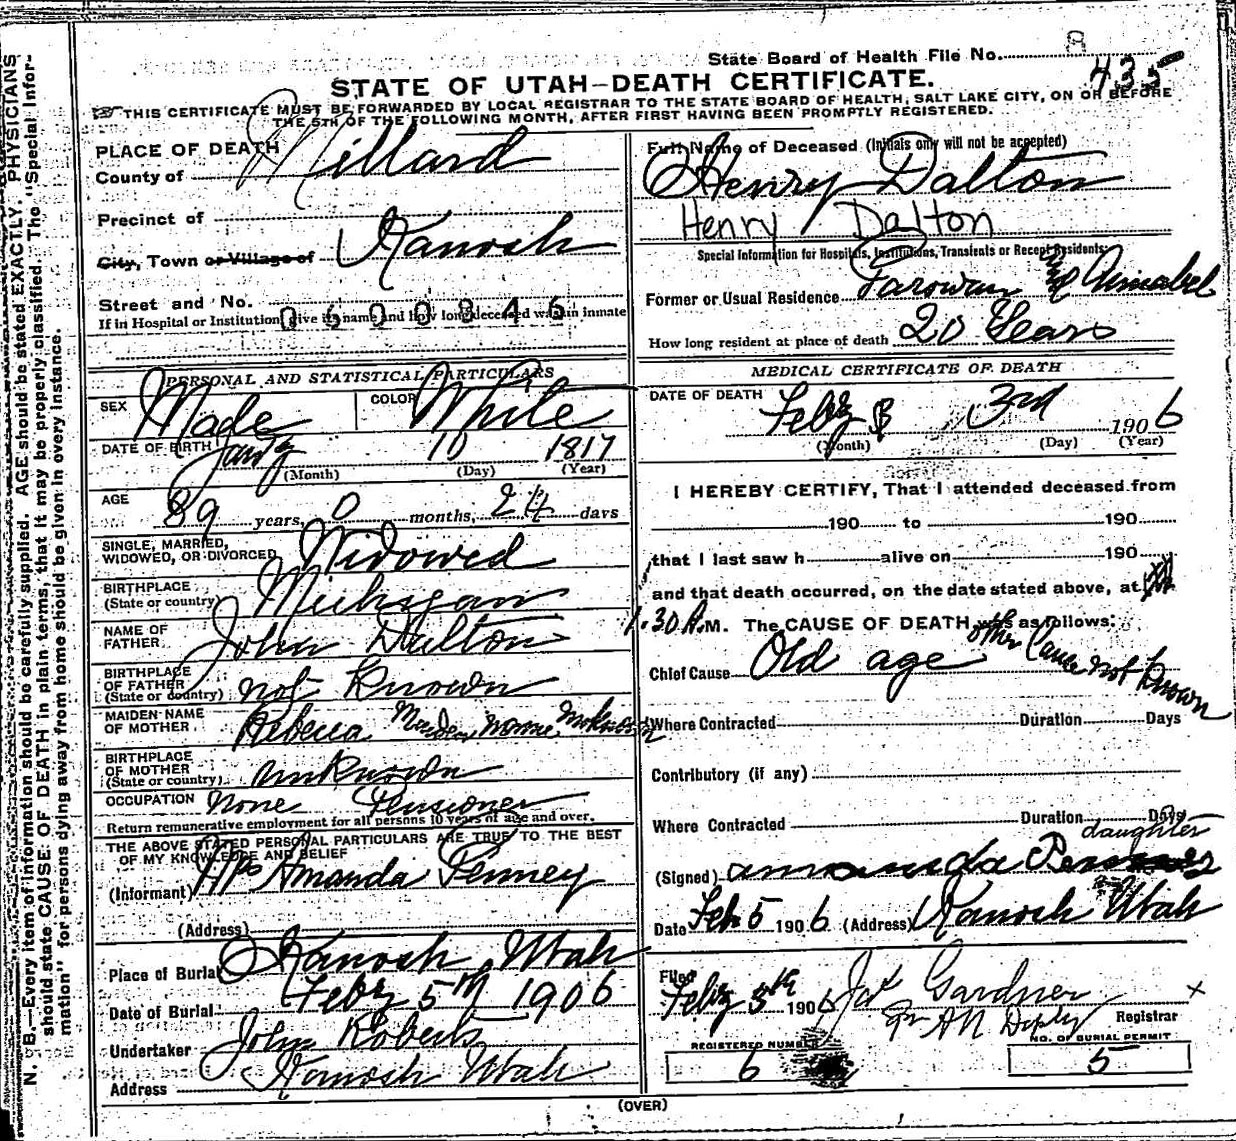 State Board of Health File No. 435
STATE OF UTAH—DEATH CERTIFICATE.
THIS CERTIFICATE MUST BE FORWARDED BY LOCAL REGISTRAR TO THE STATE BOARD OF HEALTH, SALT LAKE CITY, ON OR BEFORE
THE 5TH OF THE FOLLOWING MONTH, AFTER FIRST HAVING BEEN PROMPTLY REGISTERED.
N. B.—Every item of information should be carefully supplied. AGE should be stated EXACTLY. PHYSICIANS
should state CAUSE OF DEATH in plain terms, that it may be properly classified. The "Special Infor-
mation" for persons dying away from home should be given in every instance.
PLACE OF DEATH
County of Millard
Precinct of
City, Town or Village of Kanosh
Street and No.
0600846
If in Hospital or Institution, give its name and how long deceased was an inmate
PERSONAL AND STATISTICAL PARTICULARS
SEX Male COLOR White
DATE OF BIRTH Jany 10 1817
(Month) (Day) (Year)
AGE 89 years, 0 months, 24 days
SINGLE, MARRIED,
WIDOWED, OR DIVORCED Widowed
BIRTHPLACE
(State or country) Michigan
NAME OF
FATHER John Dalton
BIRTHPLACE
OF FATHER
(State or country) not Known
MAIDEN NAME
OF MOTHER Rebecca Maiden Name Unknown
BIRTHPLACE
OF MOTHER
(State or country) unknown
OCCUPATION None Pensioner
Return remunerative employment for all persons 10 years of age and over.
THE ABOVE STATED PERSONAL PARTICULARS ARE TRUE TO THE BEST
OF MY KNOWLEDGE AND BELIEF
(Informant) Mrs Amanda Penney
(Address)
Place of Burial Kanosh Utah
Date of Burial Feby 5th 1906
Undertaker John Roberts
Address Kanosh Utah
Full Name of Deceased (Initials only will not be accepted)
Henry Dalton
Henry Dalton
Special Information for Hospitals, Institutions, Transients or Recent Residents:
Former or Usual Residence Parowan & Annabel
How long resident at place of death 20 Years
MEDICAL CERTIFICATE OF DEATH
DATE OF DEATH Feby 3rd 1906
(Month) (Day) (Year)
I HEREBY CERTIFY, That I attended deceased from
190 to 190
that I last saw h alive on 190
and that death occurred, on the date stated above, at
1.30 A.M. The CAUSE OF DEATH was as follows:
Chief Cause Old age other Cause not Known
Where Contracted Duration Days
Contributory (if any)
Where Contracted Duration Days
daughter
(Signed) amanda
Date Feb 5 1906 (Address) Kanosh Utah
Filed
Feby 5th 1906 Gardner
Registrar
Deputy
REGISTERED NUMBER
6
NO. OF BURIAL PERMIT
5
(OVER)